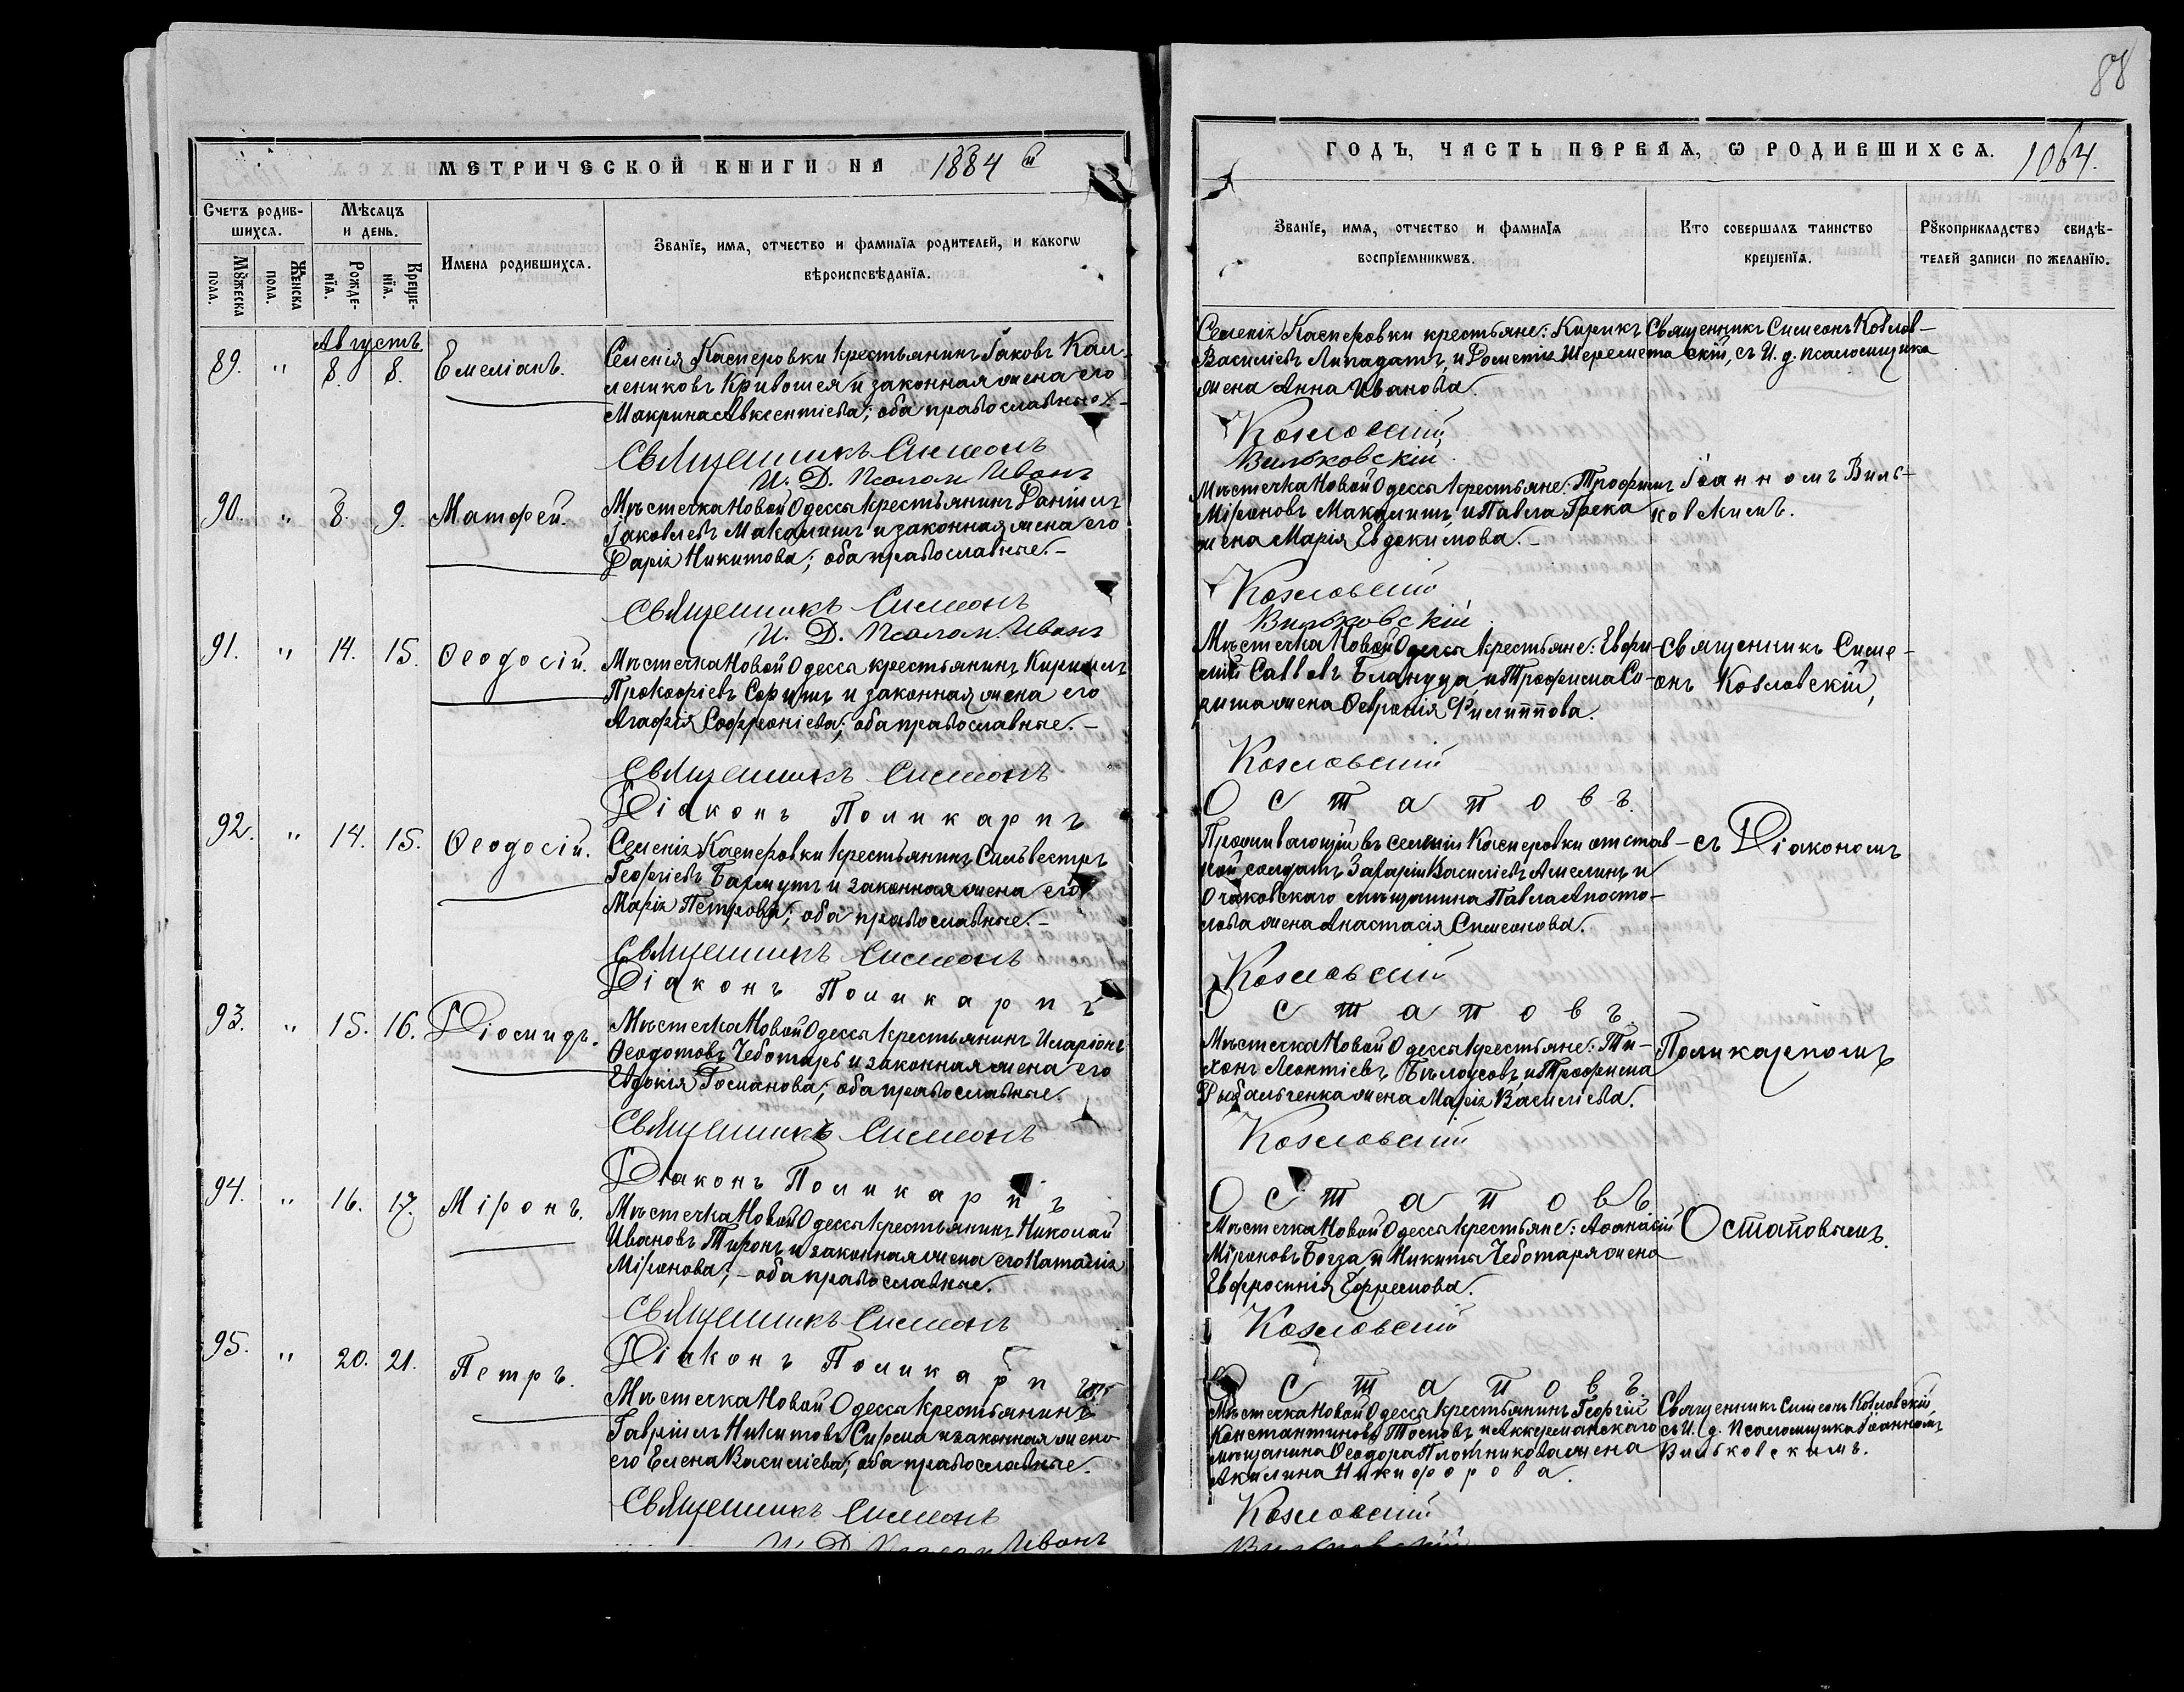 88
МЕТРИЧЕСКОЙ КНИГИ НА 1884 й
ГОДЪ, ЧАСТЬ ПЕРВАЯ, Ѡ РОДИВШИХСѦ. 1064.
Счетъ родив-
шихсѧ.
Мѣсѧцъ
и день.
Мꙋжеска
пола.
Женска
пола.
Рожде-
нїѧ.
Креще-
нїѧ.
Имена родившихсѧ.
Званїе, имѧ, отчество и фамилїѧ родителей, и какогѡ
вѣроисповѣданїѧ.
Званїе, имѧ, отчество и фамилїѧ
воспрїемникѡвъ.
Кто совершалъ таинство
крещенїѧ.
Рꙋкоприкладство свидѣ-
телей записи по желанїю.
Августъ
89. " 8. 8. Емеліанъ.
Селенія Касперовки крестьянинъ Іаковъ Кал-
лениковъ Кривошея и законная жена его
Макрина Авксентіева; оба православные.
Селенія Касперовки крестьяне: Кирикъ
Василіевъ Липадатъ, и Рометія Шеремета
жена Анна Иванова.
Священникъ Симеонъ Козлов-
скій, съ И. д. псаломщика
Священникъ Симеонъ Козловскій
И. Д. Псалом. Иванъ Вильковскій
90. " 8. 9. Матфей.
Мѣстечка Новой Одессы крестьянинъ Даніилъ
Іаковлевъ Макалишъ и законная жена его
Дарія Никитова; оба православные.-
Мѣстечка Новой Одессы крестьяне: Трофимъ
Міроновъ Макалишъ, и Павла Грека
жена Марія Евдокимова.-
Іоанномъ Виль-
ковскимъ.
Священникъ Симеонъ Козловскій
И. Д. Псалом. Иванъ Вильковскій
91. " 14. 15. Ѳеодосій.
Мѣстечка Новой Одессы крестьянинъ Кириллъ
Прокофіевъ Соришъ и законная жена его
Агафія Софроніева; оба православные.-
Мѣстечка Новой Одессы крестьяне: Евфи-
мій Саввовъ Блануца, и Трофима Со-
риша жена Ѳевронія Филиппова.
Священникъ Симе-
онъ Козловскій,
Священникъ Симеонъ Козловскій
Діаконъ Поликарпъ Остаповъ.
92. " 14. 15. Ѳеодосій.
Селенія Касперовки крестьянинъ Сильвестръ
Георгіевъ Бармутъ и законная жена его
Марія Петрова; оба православные.-
Проживающій въ селеніи Касперовки отстав-
ной солдатъ Захарій Василіевъ Амелинъ и
Очаковскаго мѣщанина Павла Апосто-
лова жена Анастасія Симеонова.
съ Діакономъ
Священникъ Симеонъ Козловскій
Діаконъ Поликарпъ Остаповъ.
93. " 15. 16. Діомидъ.
Мѣстечка Новой Одессы крестьянинъ Иларіонъ
Ѳеодотовъ Чеботарь и законная жена его
Евдокія Романова; оба православные.
Мѣстечка Новой Одессы крестьяне: Ти-
хонъ Леонтіевъ Бѣлоусовъ, и Трофима
Рыбальченка жена Марія Василіева.
Поликарпомъ
Священникъ Симеонъ Козловскій
Діаконъ Поликарпъ Остаповъ
94. " 16. 17. Міронъ.
Мѣстечка Новой Одессы крестьянинъ Николай
Ивановъ Тиронъ и законная жена его Наталія
Міронова; - оба православные.
Мѣстечка Новой Одессы крестьяне: Аѳанасій
Міроновъ Богза, и Никиты Чеботаря жена
Евфросинія Ефремова.
Остаповымъ.
Священникъ Симеонъ Козловскій
Діаконъ Поликарпъ Остаповъ.
95. " 20. 21. Петръ.
Мѣстечка Новой Одессы крестьянинъ
Гавріилъ Никитовъ Сирма и законная жена
его Елена Василіева; оба православные.
Мѣстечка Новой Одессы крестьянинъ Георгій
Константиновъ Посновъ, и Аккерманскаго
мѣщанина Ѳеодора Плотникова жена
Акилина Никифорова.
Священникъ Симеонъ Козловскій,
съ И. д. Псаломщика Іоанномъ
Вильковскимъ.
Священникъ Симеонъ Козловскій
И. Д. Псалом Иванъ Вильковскій